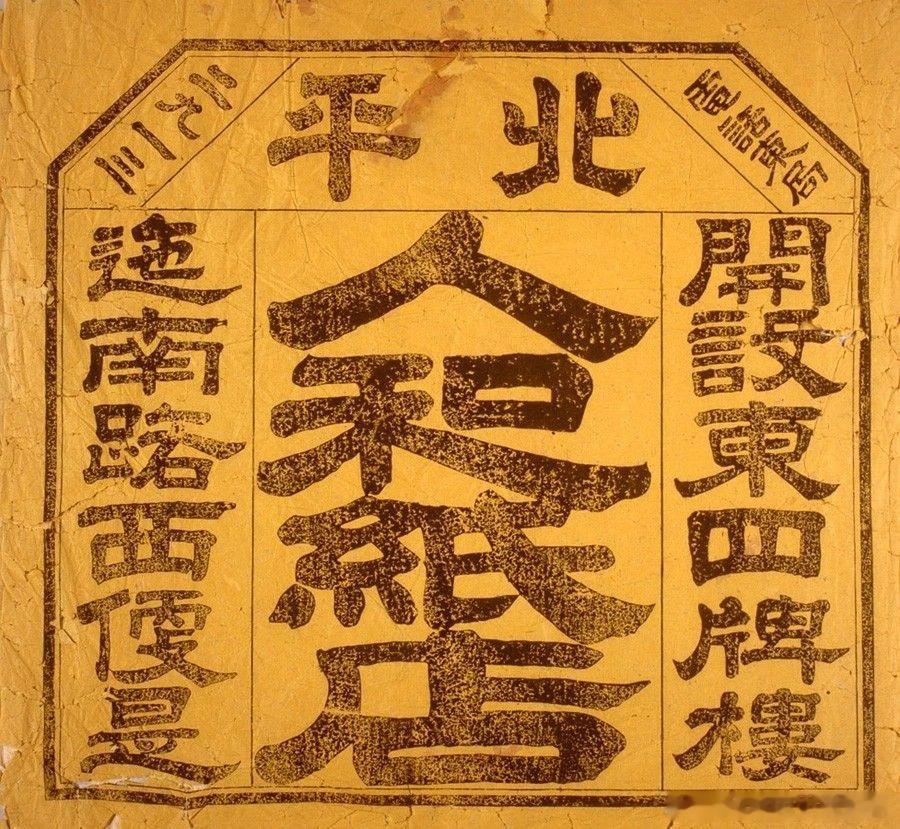 北平
電話東局
開設東四牌樓
人和紙店
迤南路西便是